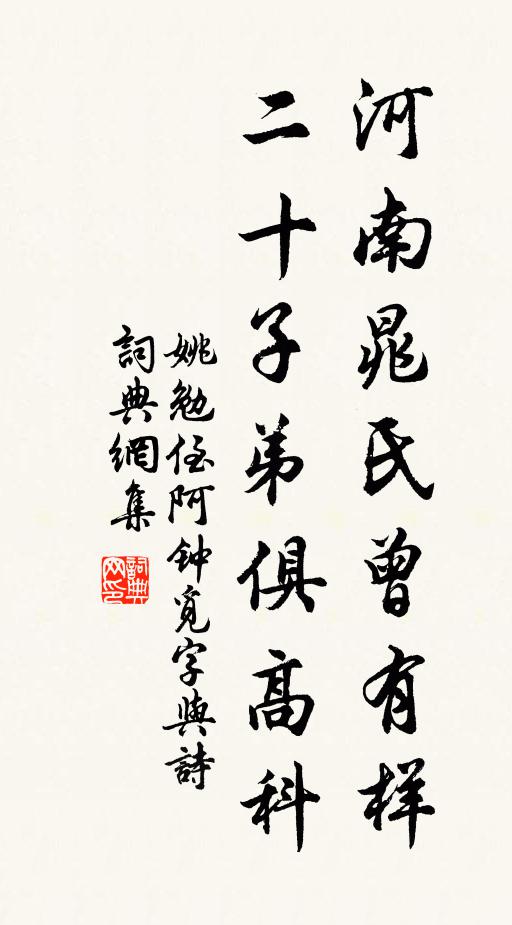 河南晁氏曾有样
二十子弟俱高科
姚勉侄阿钟觅字与詩
詞典網集
詞典网印